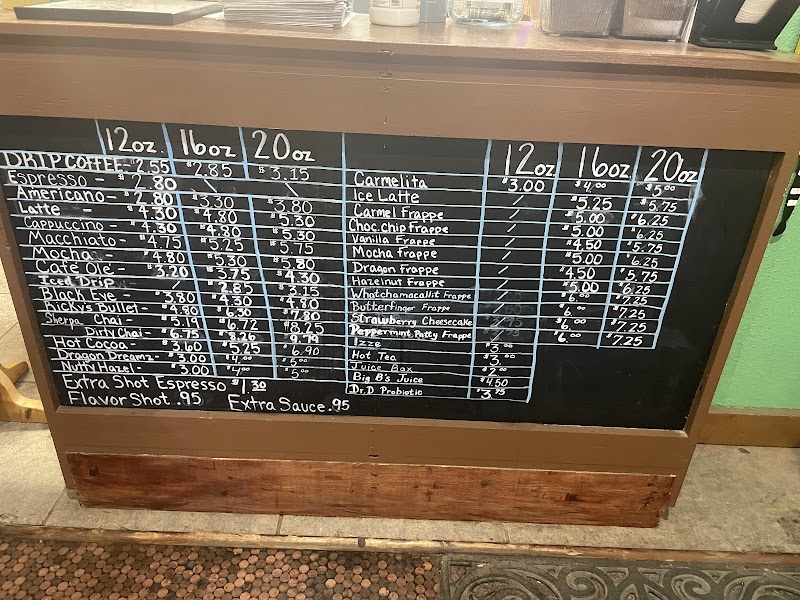 12oz. 16oz 20oz
DRIP COFFEE- $2.55 $2.85 $3.15
Espresso - $2.80 / \
Americano - $2.80 $3.30 $3.80
Latte - $4.30 $4.80 $5.30
Cappuccino - $4.30 $4.80 $5.30
Macchiato - $4.75 $5.25 $5.75
Mocha - $4.80 $5.30 $5.80
Cafe Ole - $3.20 $3.75 $4.30
Iced Drip / $2.85 $3.15
Black Eye - $3.80 $4.30 $4.80
Rickys Bullet - $4.80 $6.30 $7.80
Sherpa Chai - $5.16 $6.72 $8.75
Dirty Chai - $6.75 $8.26 9.79
Hot Cocoa - $3.60 $5.25 $6.90
Dragon Dreamz - $3.00 $4.00 $5.00
Nutty Hazel - $3.00 $4.00 $5.00
Extra Shot Espresso $1.30
Flavor Shot .95 Extra Sauce .95
12oz 16oz 20oz
Carmelita $3.00 $4.00 $5.00
Ice Latte / $5.25 $5.75
Carmel Frappe / $5.00 $6.25
Choc.chip Frappe / $5.00 $6.25
Vanilla Frappe / $4.50 $5.75
Mocha Frappe / $5.00 $6.25
Dragon Frappe / $4.50 $5.75
Hazelnut Frappe / $5.00 $6.25
Whatchamacallit Frappe / $6.00 $7.25
Butterfinger Frappe $6.00 $7.25
Strawberry Cheesecake $6.00 $7.25
Peppermint Patty Frappe $6.00 $7.25
Izze $3.00
Hot Tea $3.00
Juice Box $2.00
Big B's Juice $4.50
Dr.D Probiotic $3.95